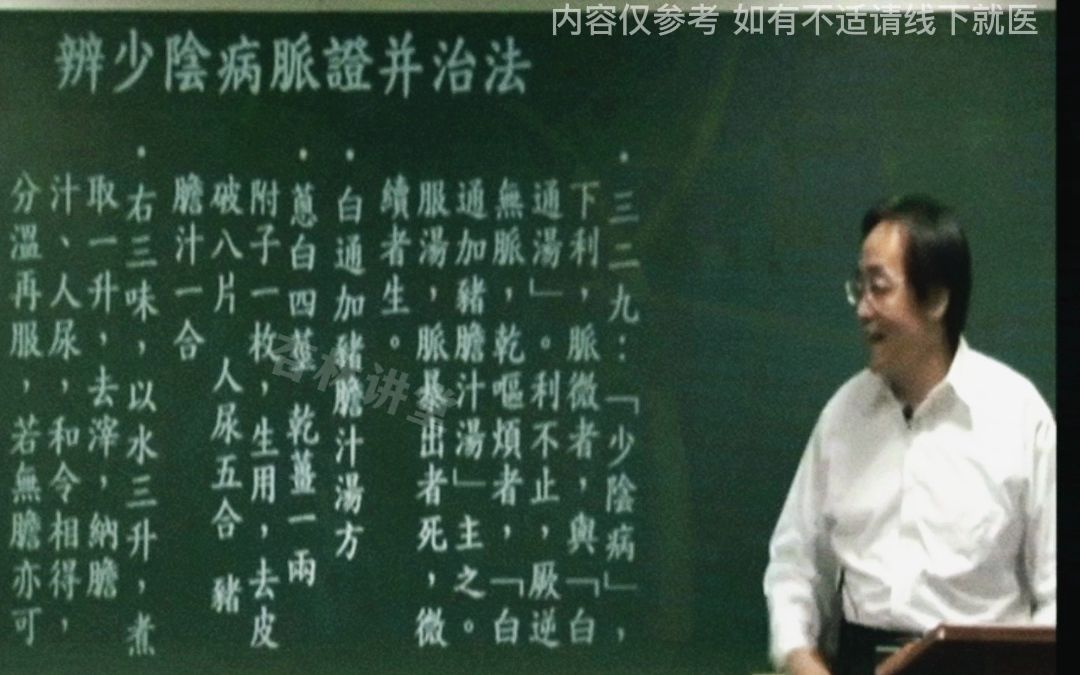 内容仅参考 如有不适请线下就医
辨少陰病脈證并治法
・三二九：「少陰病」，
下利，脈微者，與「白
通湯」。利不止，厥逆
無脈，乾嘔煩者，「白
通加豬膽汁湯」主之。
服湯，脈暴出者死，微
續者生。
・白通加豬膽汁湯方
・蔥白四莖 乾薑一兩
附子一枚，生用，去皮
破八片 人尿五合 豬
膽汁一合
・右三味，以水三升，煮
取一升，去滓，納膽
汁、人尿，和令相得，
分溫再服，若無膽亦可
杏林讲堂